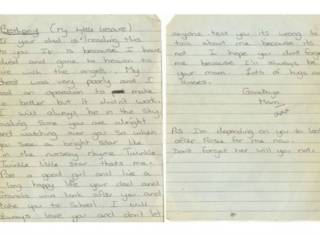 (my little
If your dad is reading this
to you. It is because I have
died and gone to heaven to
live with the angels. My
was very poorly and I
had an operation to make
it better but it didnt work.
I will always be in the sky
making sure you are alright
and watching over you. So when
you see a bright star like
in the nursery rhyme Twinkle
Twinkle little star thats me.
Be a good girl and live a
long happy life your dad and
will look after you and
take you to School. I will
always love you and dont let
anyone tell you its wrong to
talk about me because its
not. I hope you dont forget
me because I'll always be
your mam. Lots of hugs and
kisses.
Goodbye
Mam
As I'm depending on you to look
after Rosie for me now.
Don't forget her will you not.